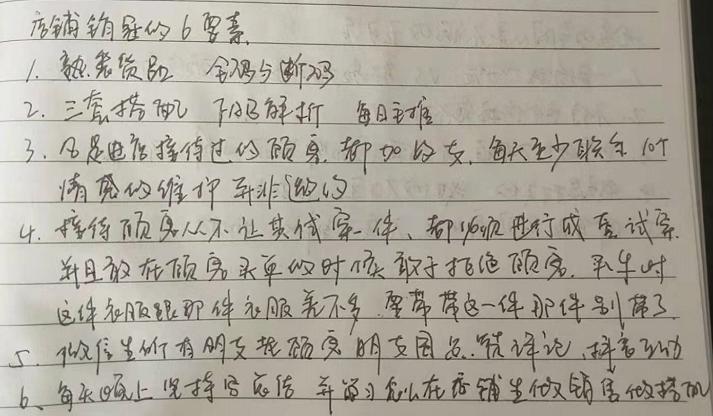 店铺销冠的6要素
1. 熟悉货品 全码与断码
2. 三套搭配 FAB解析 每日主推
3. 凡是进店接待过的顾客,都加好友,每天至少联系10个
情感的维护并非邀约
4. 接待顾客从不让其试穿一件、都必须进行成套试穿
并且敢在顾客买单的时候敢于拒绝顾客.买单时
这件衣服跟那件衣服差不多.要带带这一件那件别带了.
5. 微信生价有朋友把顾客朋友圈点赞评论,抖音互动
6、每天晚上坚持写总结 并学习怎么在店铺生做销售做搭配